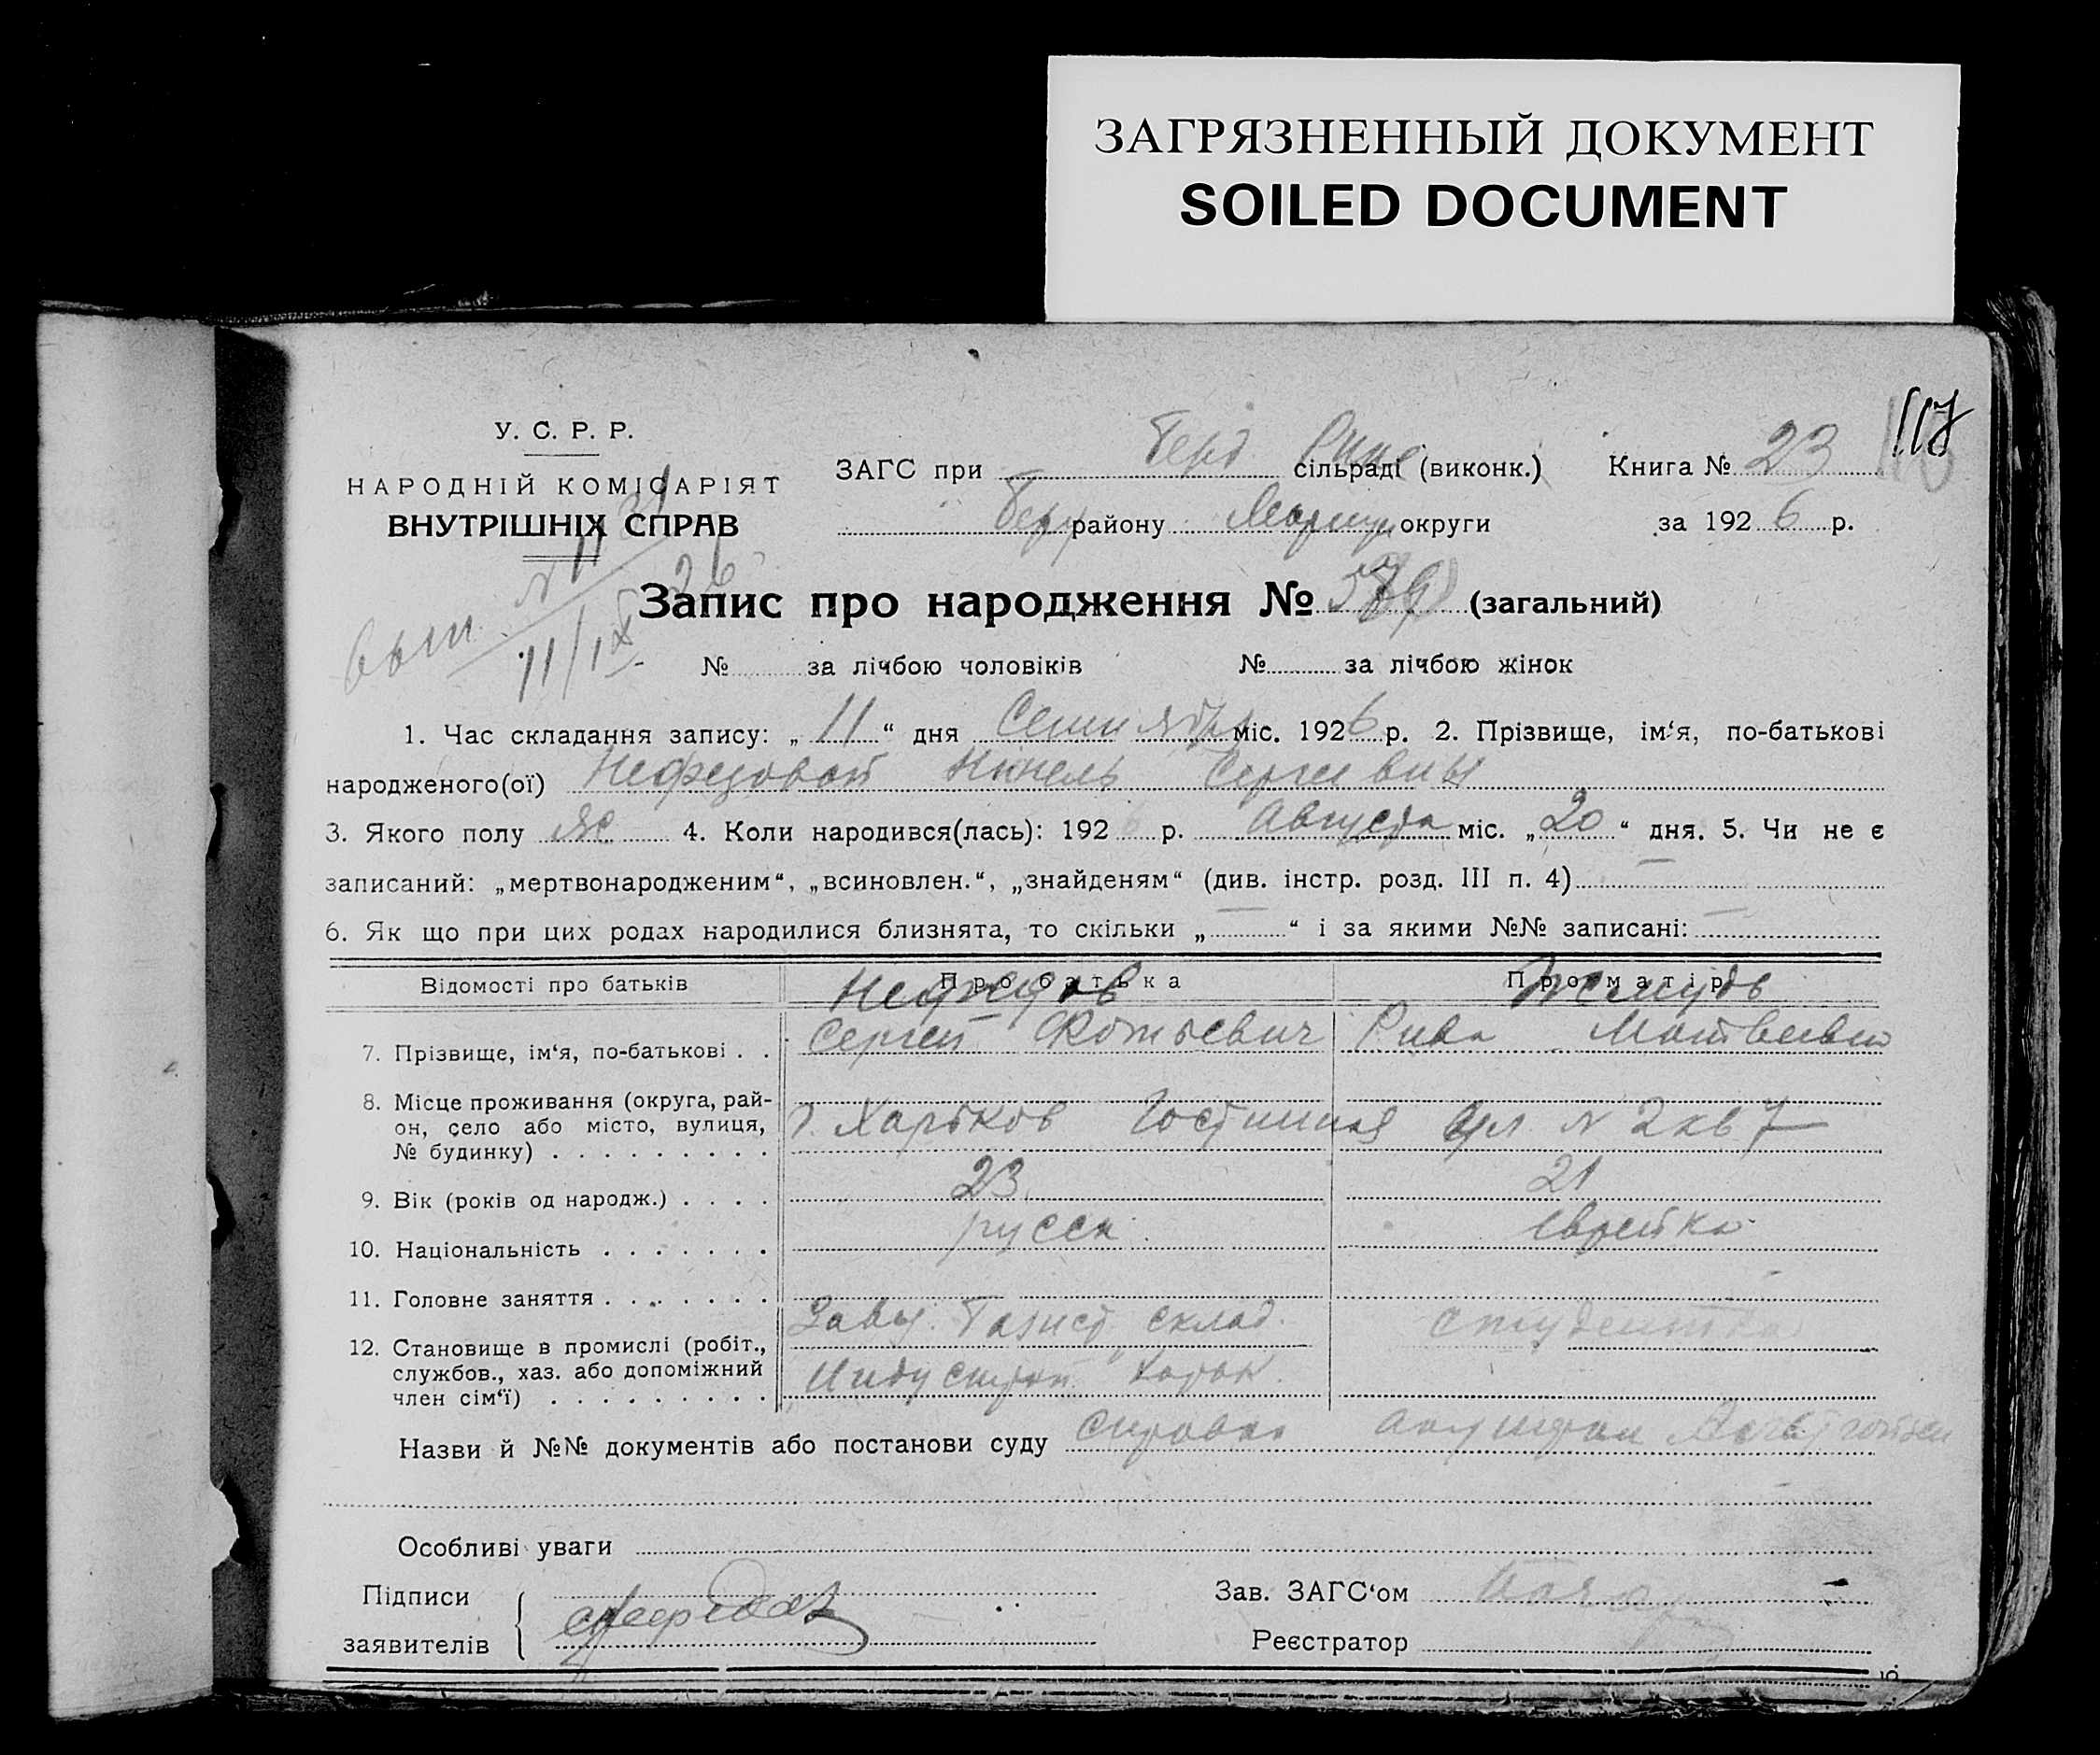 ЗАГРЯЗНЕННЫЙ ДОКУМЕНТ
SOILED DOCUMENT
117
У. С. Р. Р.
НАРОДНІЙ КОМІСАРІЯТ
ВНУТРІШНІХ СПРАВ
ЗАГС при Берд сільраді (виконк.) Книга № 23
району Мариуп округи за 1926 р.
Запис про народження № (загальний)
№ за лічбою чоловіків № за лічбою жінок
11/IX
1. Час складання запису: „11“ дня Сентября міс. 1926 р. 2. Прізвище, ім‘я, по-батькові
народженого(ої) Нефедовой Нинель Сергеевны
3. Якого полу же 4. Коли народився(лась): 192 р. Августа міс. „20“ дня. 5. Чи не є
записаний: „мертвонародженим“, „всиновлен.“, „знайденям“ (див. інстр. розд. III п. 4) —
6. Як що при цих родах народилися близнята, то скільки „—“ і за якими №№ записані: —
Відомості про батьків Про батька Про матір
Нефедов Жмудь
7. Прізвище, ім‘я, по-батькові . . Сергей Фотьевич Рива Матвеевна
8. Місце проживання (округа, рай-
он, село або місто, вулиця,
№ будинку) . . . . . . . . . г. Харьков Гостинная ул N 2 кв 7
9. Вік (років од народж.) . . . . 23 21
10. Національність . . . . . . . русск еврейка
11. Головне заняття . . . . . . .
Завед. склад. студентка
12. Становище в промислі (робіт.,
службов., хаз. або допоміжний
член сім‘ї) . . . . . . . . . Индустрия Харьк.
Назви й №№ документів або постанови суду справка
Особливі уваги
Підписи
заявителів Нефедов
Зав. ЗАГС‘ом
Реєстратор